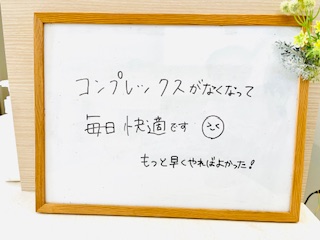 コンプレックスがなくなって
毎日快適です
もっと早くやればよかった!